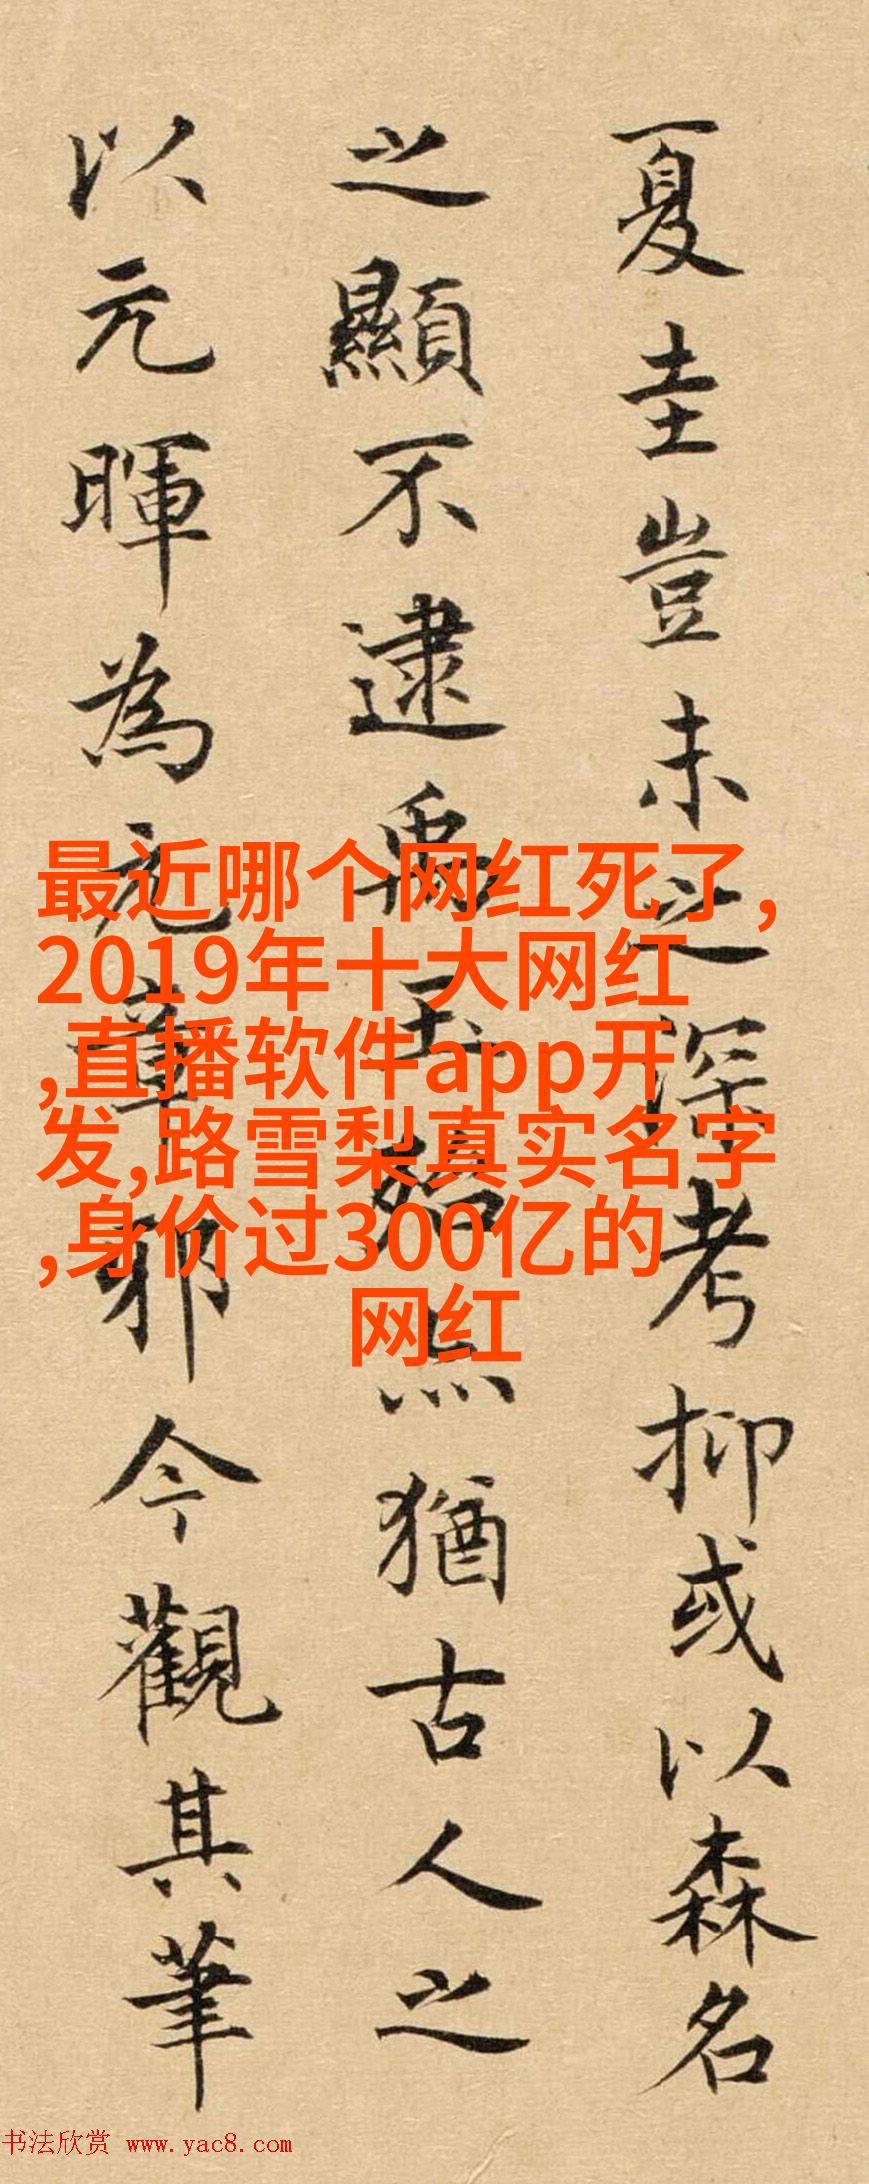 夏圭豈未之深考抑或以森名
之顯不逮禹玉殆無猶古人之
以元暉為元章邪今觀其筆
最近哪个网红死了,
2019年十大网红
,直播软件app开
发,路雪梨真实名字
,身价过300亿的
网红
书法欣赏 www.yac8.com